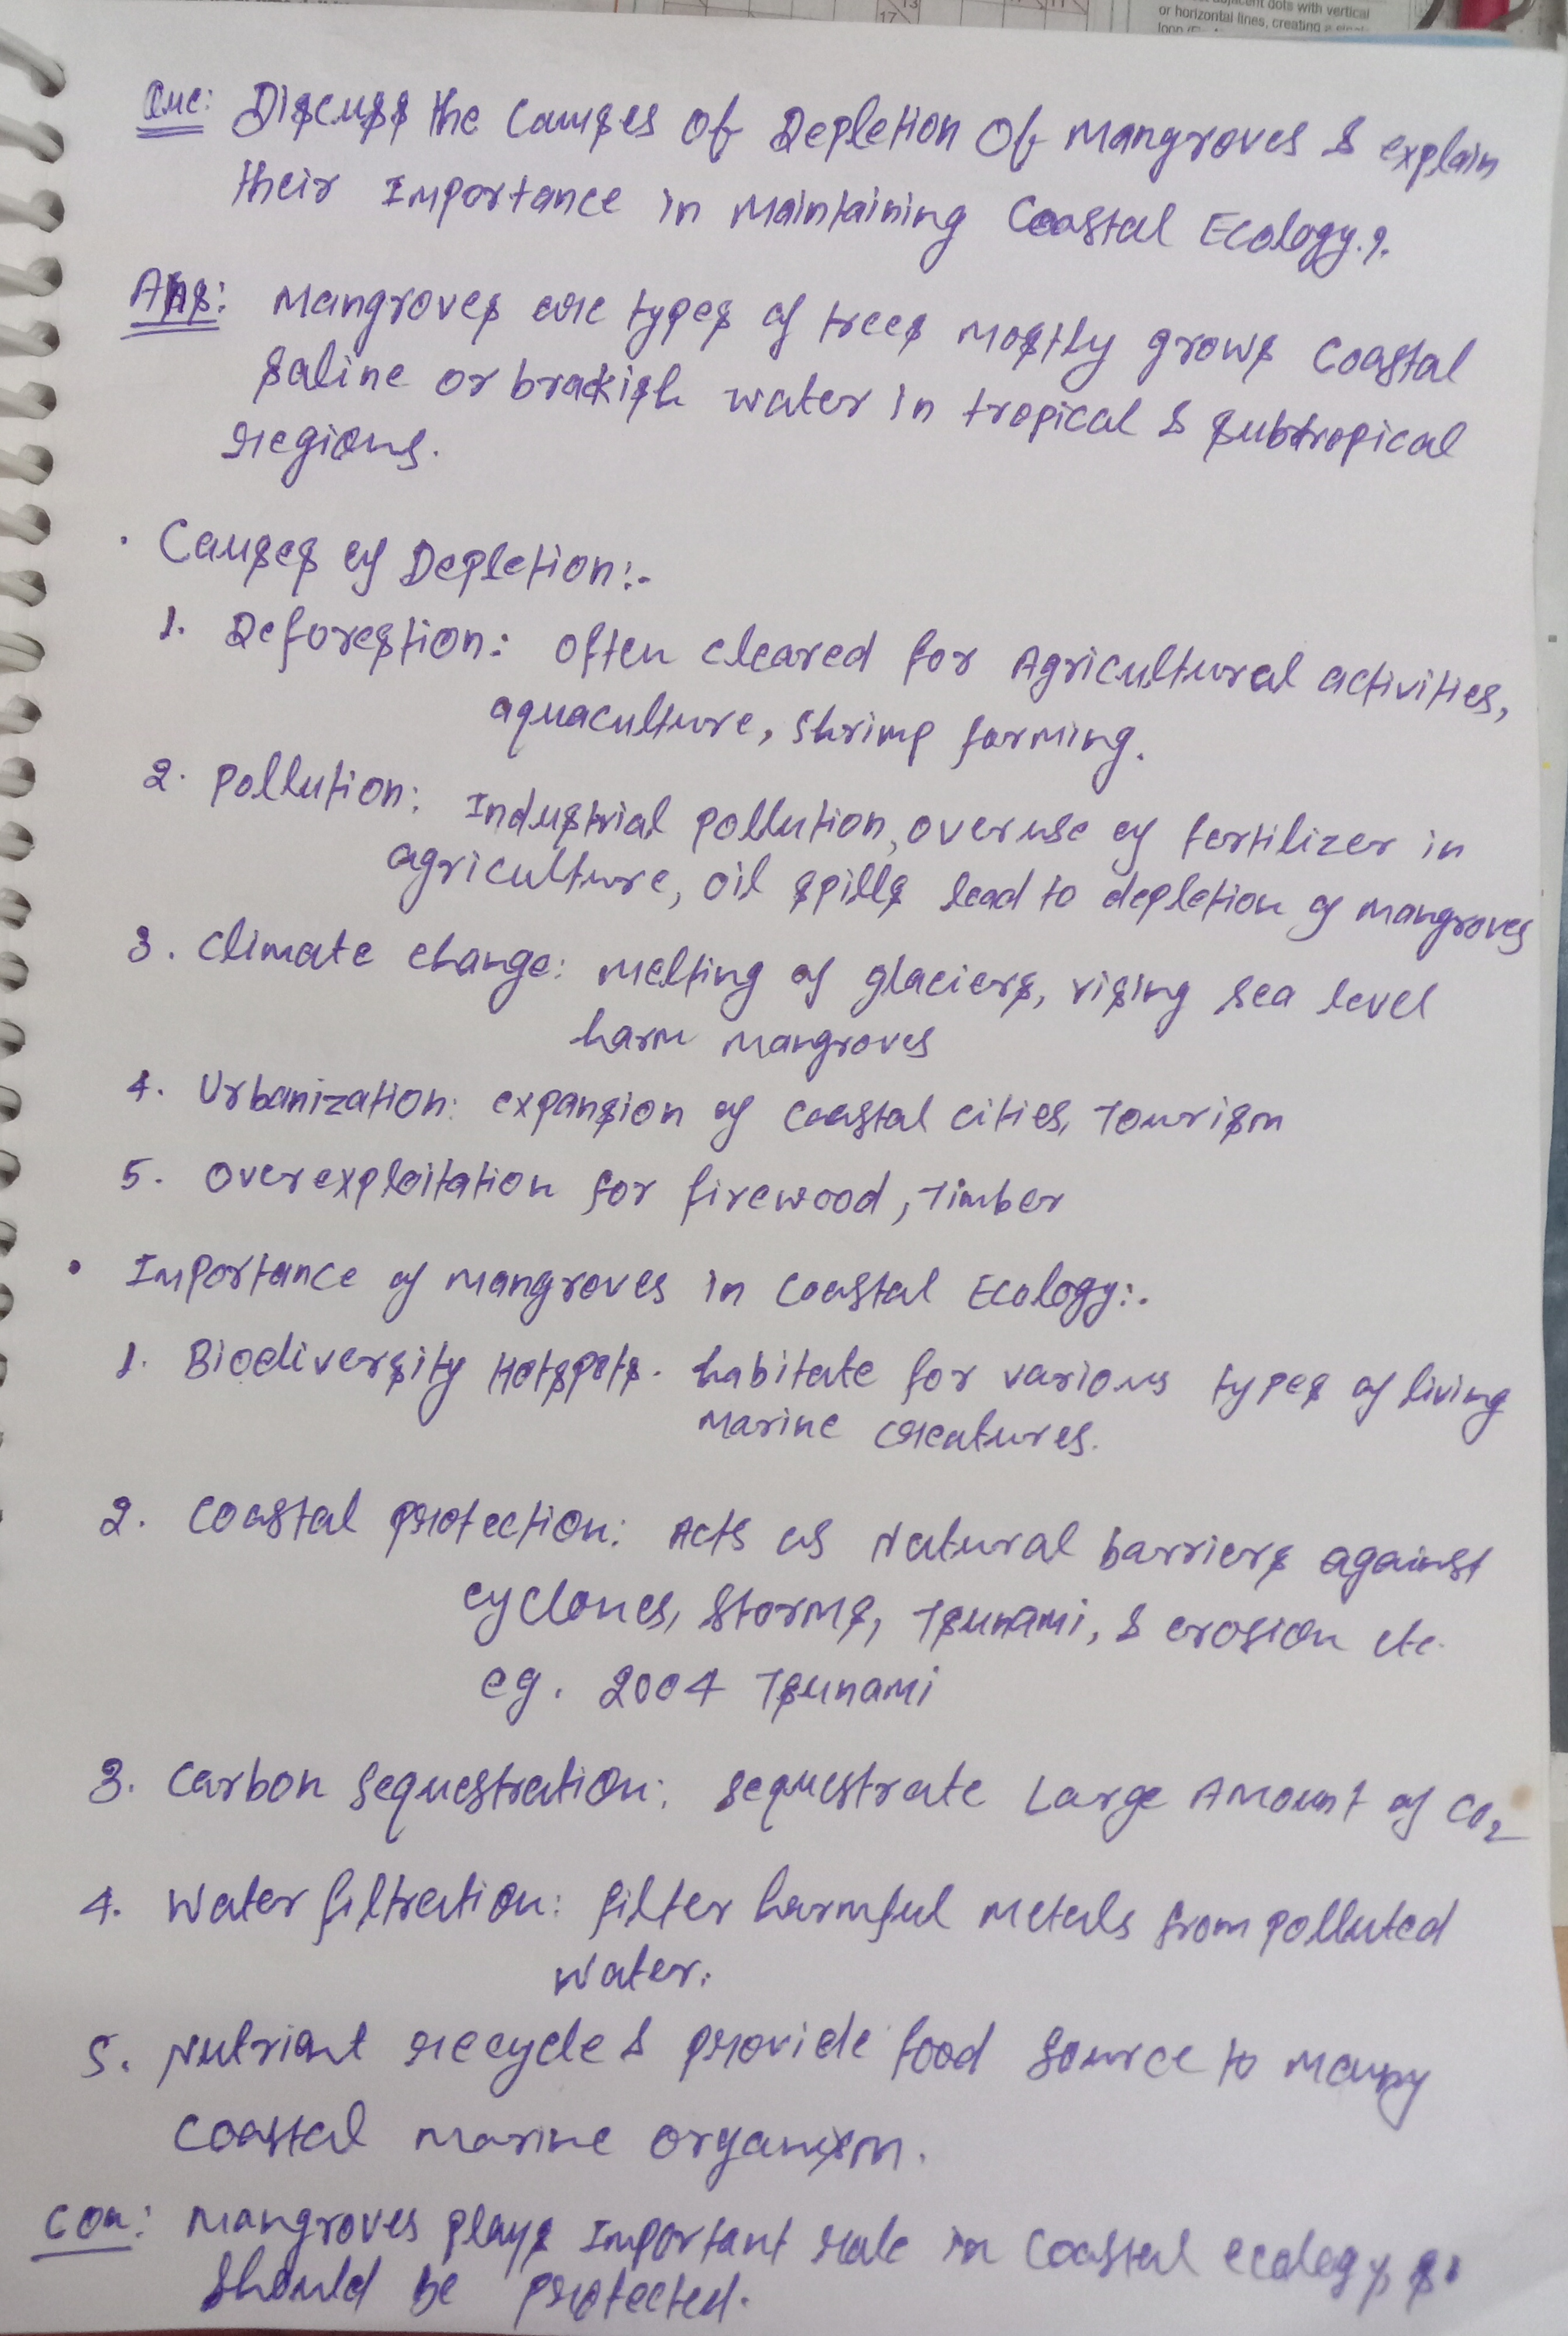 17 13 11
adjacent dots with vertical
or horizontal lines, creating a single
loop
Que: Discuss the Causes of Depletion of Mangroves & explain
their Importance in Maintaining Coastal Ecology.?.
Ans: Mangroves are types of trees mostly grows Coastal
saline or brakish water in tropical & subtropical
regions.
• Causes of Depletion:-
1. Deforestion: often cleared for Agricultural activities,
aquaculture, shrimp farming.
2. Pollution: Industrial pollution, overuse of fertilizer in
agriculture, oil spills lead to depletion of mangroves
3. Climate change: melting of glaciers, rising sea level
harm mangroves
4. Urbanization: expansion of coastal cities, Tourism
5. Overexploitation for firewood, Timber
• Importance of Mangroves in Coastal Ecology:-
1. Biodiversity Hotspots. habitate for various types of living
marine creatures.
2. Coastal protection: Acts as Natural barriers against
cyclones, storms, Tsunami, & erosion etc.
eg. 2004 Tsunami
3. Carbon Sequestration: sequestrate Large Amount of CO2
4. Water filtration: filter harmful metals from polluted
water.
5. Nutriant recycle & provide food source to many
coastal marine organism.
Con: Mangroves plays Important role in Coastal ecology &
should be protected.